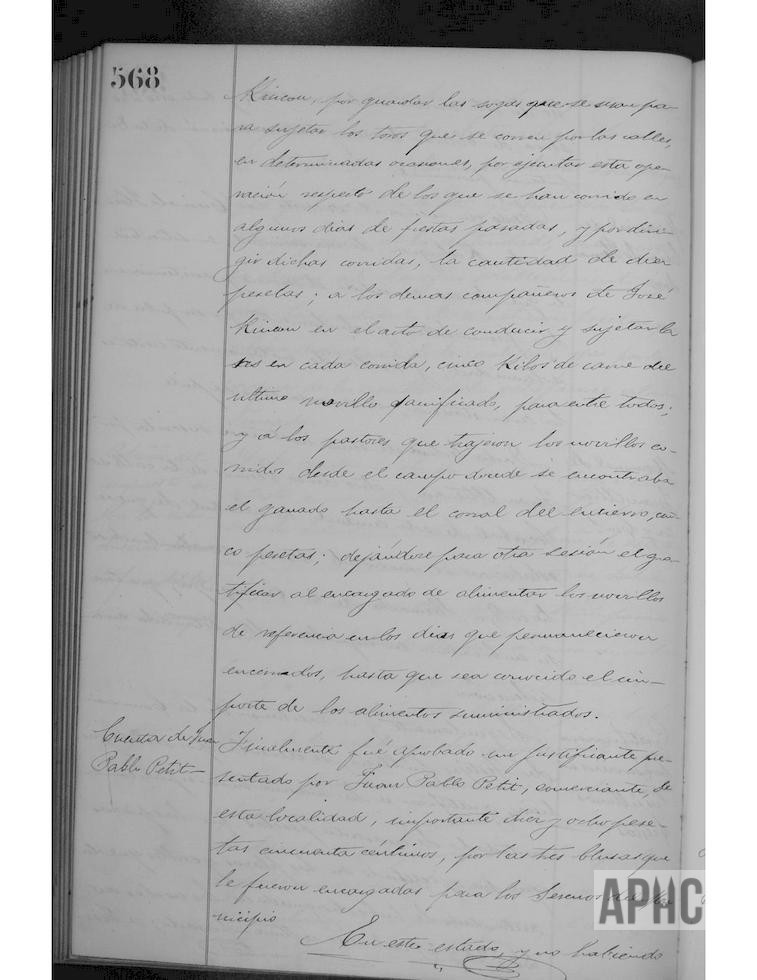 568
Rincon, por guardar las sogas que se usan pa-
ra sujetar los toros que se corren por las calles,
en determinadas ocasiones, por ejecutar esta ope-
ración respecto de los que se han corrido en
algunos dias de fiestas pasadas, y por diri-
gir dichas corridas, la cantidad de diez
pesetas; á los demas compañeros de José
Rincon en el acto de conducir y sujetar la
res en cada corrida, cinco Kilos de carne del
ultimo novillo sacrificado, para entre todos;
y á los pastores que trajeron los novillos co-
rridos desde el campo donde se encontraba
el ganado hasta el corral del entierro, cin-
co pesetas; dejándose para otra sesión el gra-
tificar al encargado de alimentar los novillos
de referencia en los dias que permanecieron
encerrados, hasta que sea conocido el im-
porte de los alimentos suministrados.
Cuenta de Juan
Pablo Petit
Finalmente fué aprobado un justificante pre-
sentado por Juan Pablo Petit, comerciante, de
esta localidad, importante diez y ocho pese-
tas cincuenta céntimos, por las tres blusas que
le fueron encargadas para los Serenos del Mu-
nicipio
En este estado, y no habiendo
APHC